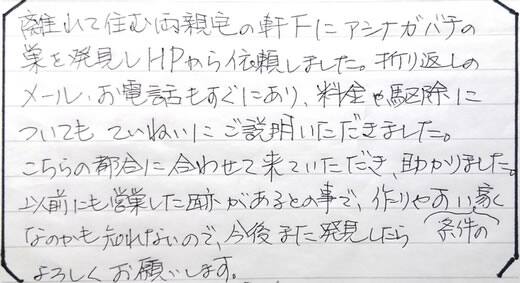 離れて住む両親宅の軒下にアシナガバチの
巣を発見しHPから依頼しました。折り返しの
メール・お電話もすぐにあり、料金や駆除に
ついても ていねいにご説明いただきました。
こちらの都合に合わせて来ていただき、助かりました。
以前にも営巣した跡があるとの事で、作りやすい家
なのかも知れないので、今後また発見したら 条件の
よろしくお願いします。